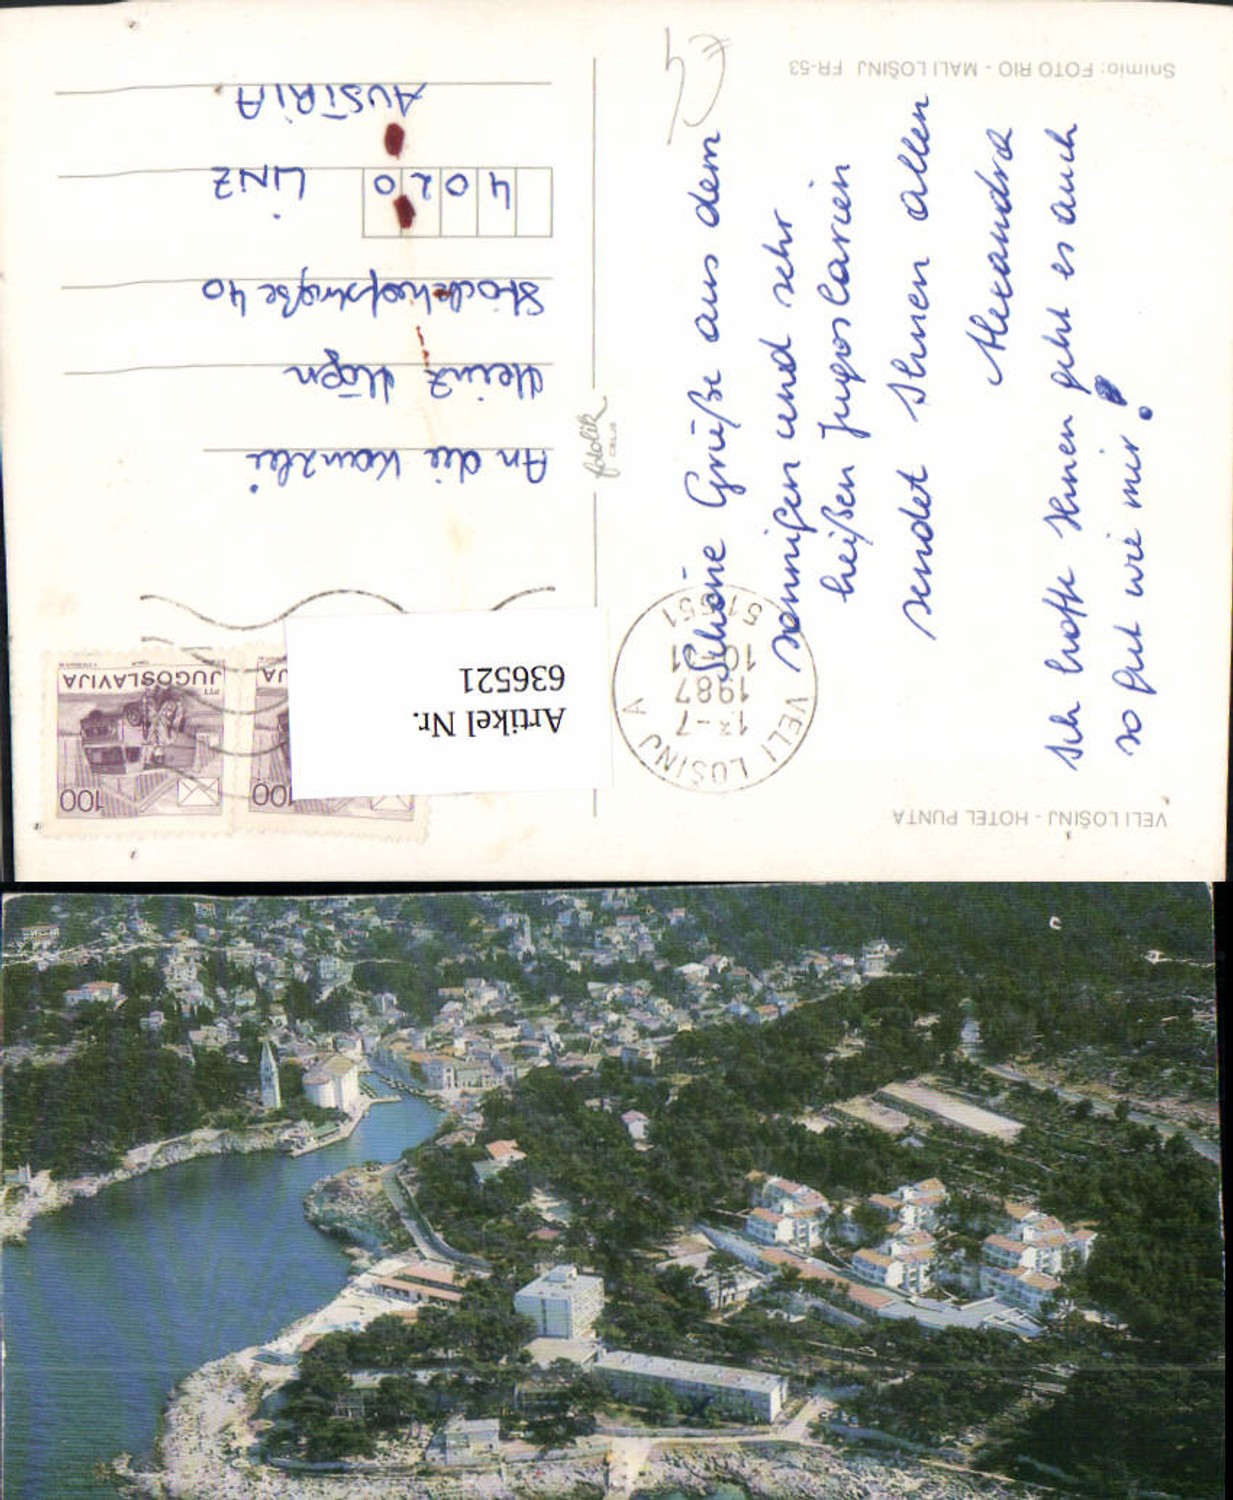 VELI LOŠINJ - HOTEL PUNTA
Schöne Grüße aus dem
sonnigen und sehr
heißen Jugoslavien
sendet Ihnen allen
Alexandra
Ich hoffe Ihnen geht es auch
so gut wie mir!
Snimio: FOTO RIO - MALI LOŠINJ FR-53
VELI LOŠINJ A
1987
10-01
51551
fotolik
CELJE
100
PTT
JUGOSLAVIJA
100
JU
Artikel Nr.
636521
An die Kanzlei
Heinz
40
4020 LINZ
AUSTRIA